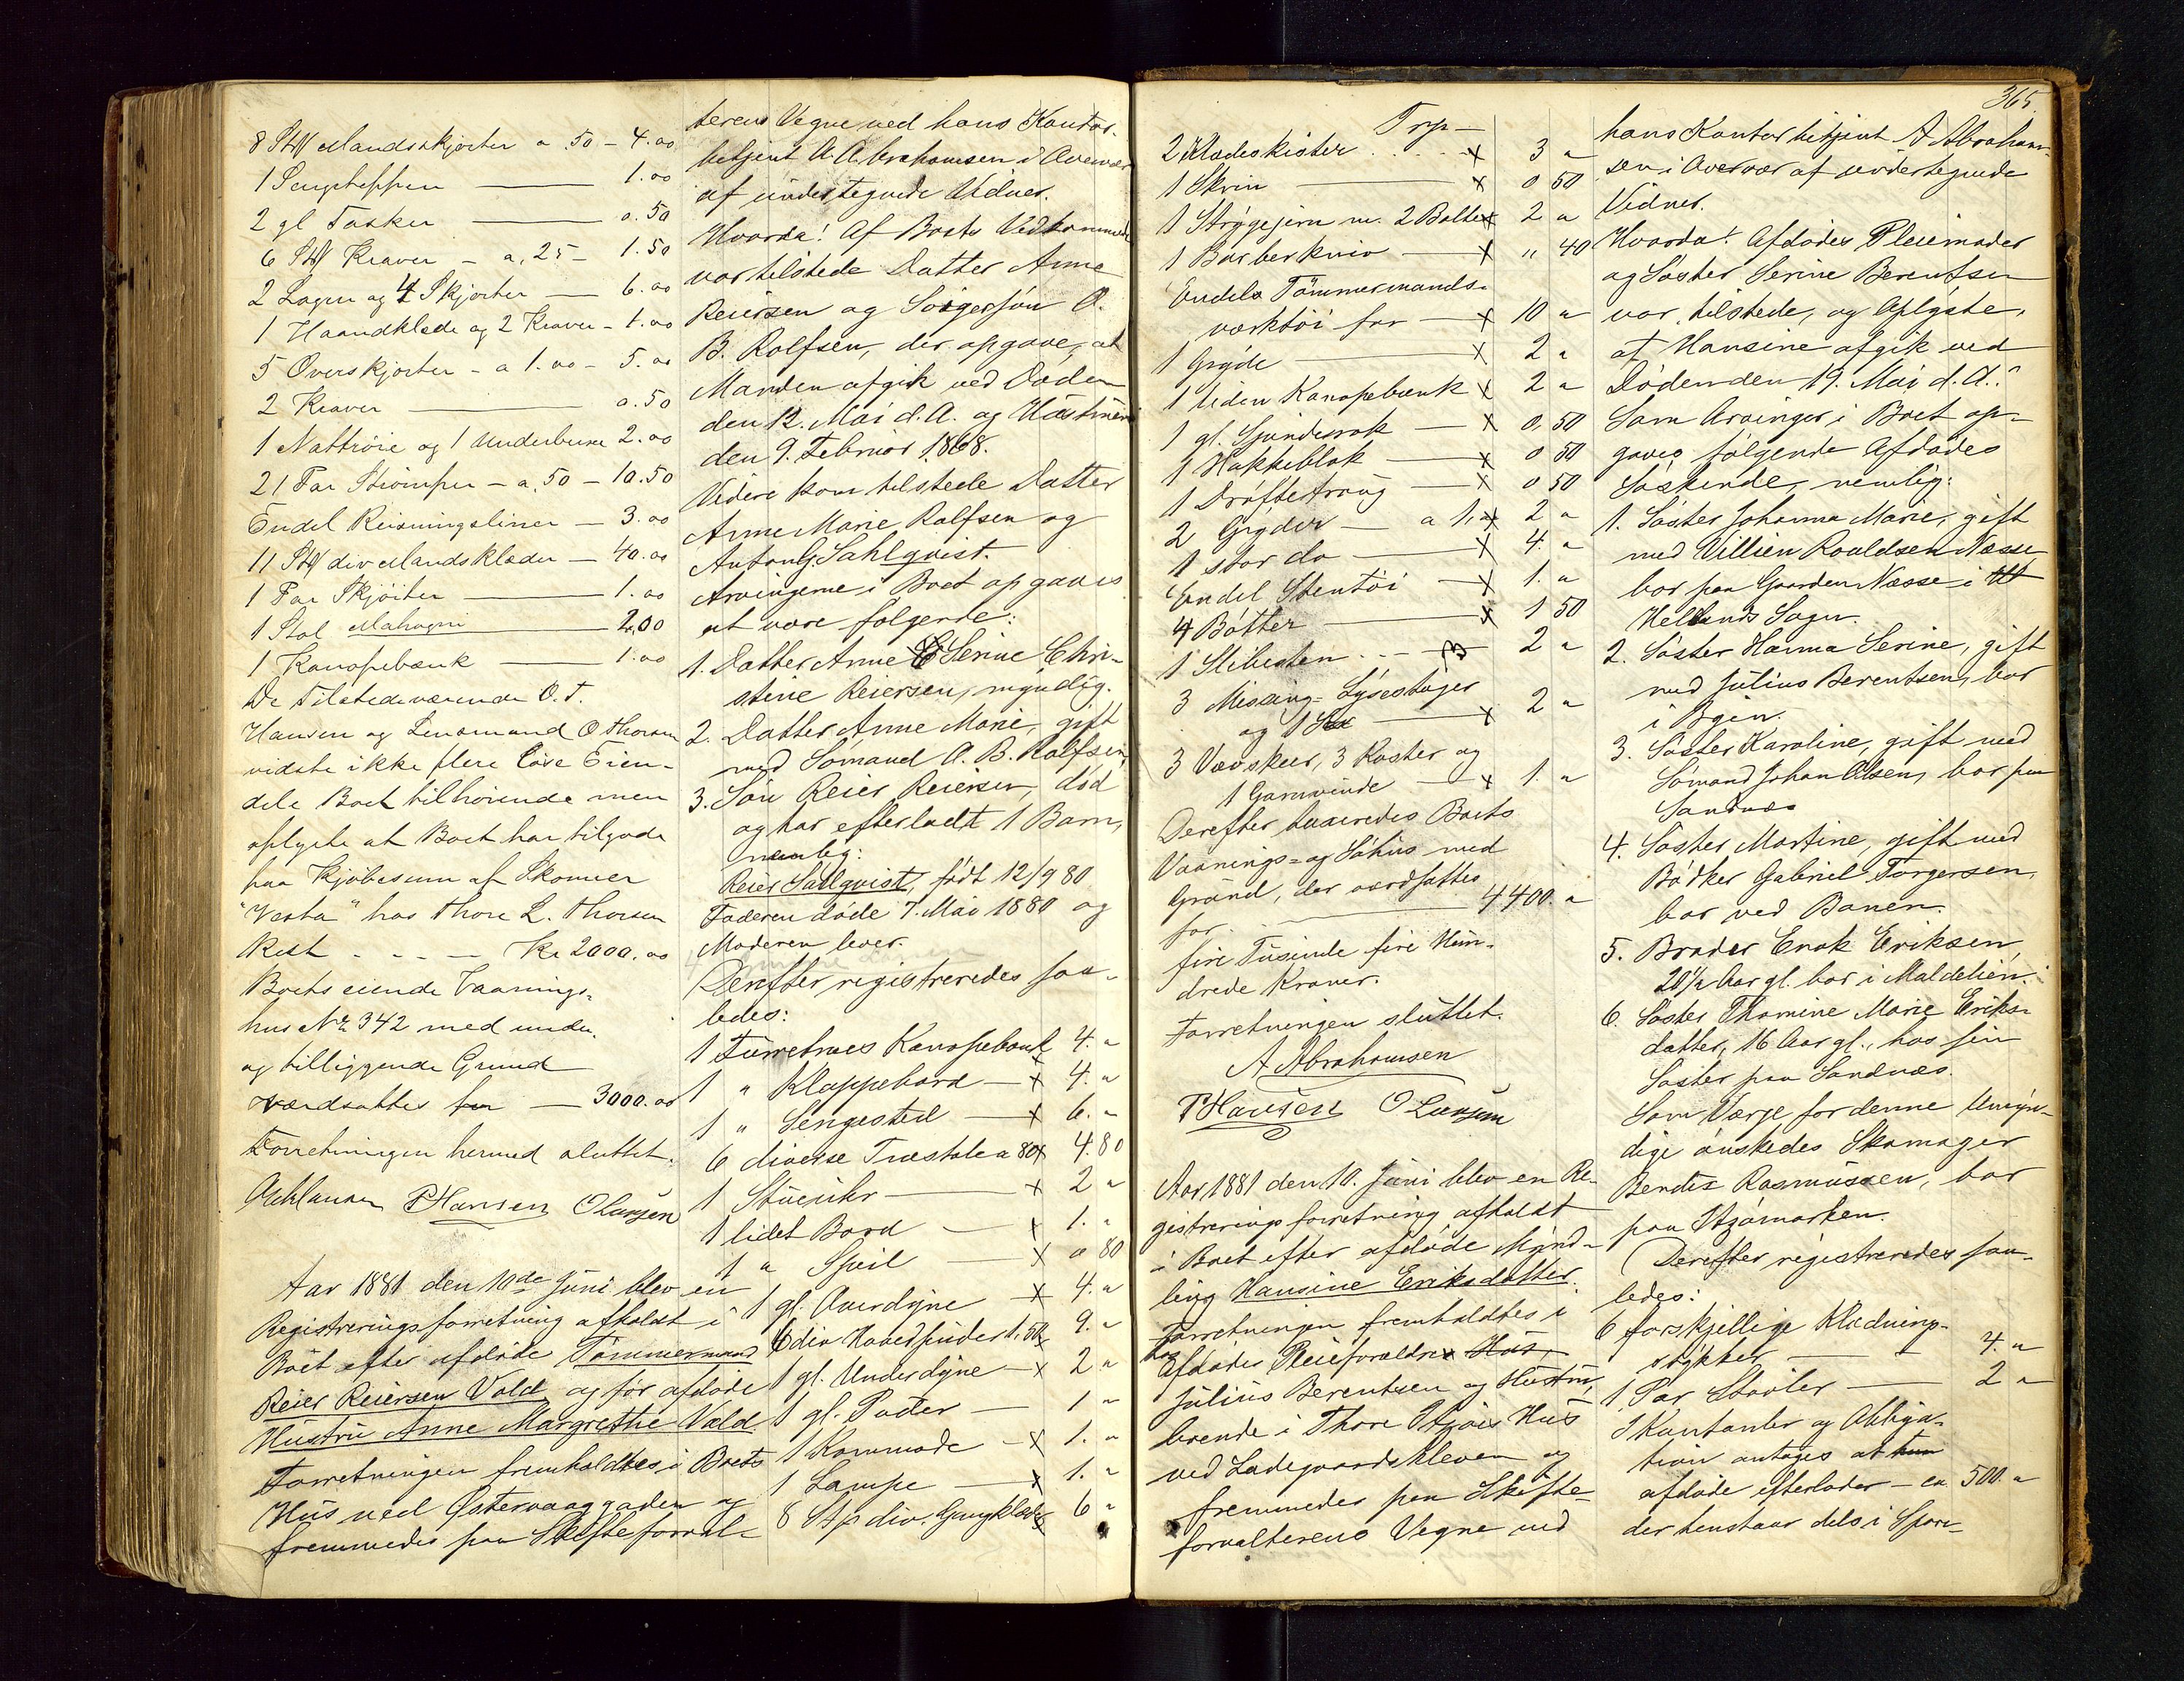 8 Stk Mandsskjorter a .50 - 4.00
1 Sengeteppe — 1.00
2 gl Tasker — 0.50
6 Stk Kraver - a .25 - 1.50
2 Lagen og 4 Skjorter — 6.00
1 Haandklæde og 2 Kraver - 1.00
5 Overskjorter - a 1.00 - 5.00
2 Kraver — 0.50
1 Nattrøie og 1 Underbuxe 2.00
21 Par Strømper - a .50 - 10.50
Endel Reisningsliner — 3.00
11 Stk div Mandsklæder — 40.00
1 Par Skjøiter — 1.00
1 Stol Mahogni — 2,00
1 Kanapebænk — 1.00
De Tilstedeværende O. T.
Hansen og Lensmand O Thorsen
vidste ikke flere løse Eien-
dele Boet tilhørende men
oplyste at Boet har tilgode
paa Kjøbesum af Skonner
"Vesta" hos Thore L. Thorsen
Rest . - - — Kr 2000.00
Boets eiende Vaanings-
hus No 342 med under
og tilliggende Grund
værdsattes for — 3000.00
Forretningen hermed sluttet.
PHansen OLarsen
Aar 1881 den 10de Juni blev en
Registreringsforretning afholdt i
Boet efter afdøde Tømmermand
Reier Reiersen Vold og før afdøde
Hustru Anne Margrethe Vold.
Forretningen fremholdtes i Boets
Hus ved Østervaaggaden og
fremmedes paa Skifteforval-
terens Vegne ved hans Kontor-
betjent A. Abrahamsen i Overvær
af undertegnede Vidner.
Hvorda! Af Boets Vedkommende
var tilstede Datter Anne
Reiersen og Svigersøn O.
B. Rolfsen, der opgave, at
Manden afgik ved Døden
den 12. Mai d. A. og Hustruen
den 9. Februar 1868.
Videre kom tilstede Datter
Anne Marie Rolfsen og
Anton G Sahlqvist.
Arvingerne i Boet opgaves
at være følgende:
1. Datter Anne Serine Chri-
stine Reiersen, myndig.
2. Datter Anne Marie, gift
med Sømand O. B. Rolfsen,
3. Søn Reier Reiersen, død
og har efterladt 1 Barn,
nemlig:
Reier Sahlqvist, født 12/9 80
Faderen døde 7. Mai 1880 og
Moderen lever.
Derefter registreredes saa-
ledes:
1 Furretræes Kanapebænk 4. "
1 " Klappebord — x 4. "
1 " Sengested — x 6. "
6 diverse Træstole a 80 x 4.80
1 Stueuhr — x 2 "
1 lidet Bord — x 1. "
1 " Speil — x 0 80
1 gl. Overdyne — x 4. "
6 div Hovedpuder 1.50 x 9. "
1 gl. Underdyne — x 2 "
1 gl. Puder — 1 "
1 Kommode — x 1. "
1 Lampe — x 1. "
8 Stk div. Gangklæder x 6 "
365.
Trp —
2 Klædeskister . . . . x 3 "
1 Skrin — x 0 50
1 Strygejern m. 2 Bolter x 2 "
1 Barberkniv — x " 40
Endels Tømmermands-
værktøi for — x 10 "
1 Gryde — x 2 "
1 liden Kanapebænk x 2 "
1 gl. Spinderok — x 0,50
1 Hakkeblok — x 0 50
1 Drøftetraug — x 0 50
2 Gryder — a 1, " x 2 "
1 stor do — x 4. "
Endel Stentøi — x 1. "
4 Bøtter — x 1 50
1 Slibesten . . — 2 "
3 Messing-Lysestager
og 1 Sax — x 2 "
3 Vævskeer, 3 Koster og
1 Garnvinde — x 1. "
Derefter taxeredes Boets
Vaanings- og Søhus med
Grund, der værdsattes
for — 4400. "
fire Tusinde fire Hun-
drede Kroner.
Forretningen sluttet.
A Abrahamsen
PHansen OLarsen
Aar 1881 den 10. Juni blev en Re-
gistreringsforretning afholdt
i Boet efter afdøde Mynd-
ling Hansine Eriksdatter.
Forretningen fremholdtes i
hos
Afdødes Pleieforældre Hus,
Julius Berentsen og Hustru,
boende i Thore Hus
ved Ladegaardskleven og
fremmedes paa Skifte-
forvalterens Vegne ved
hans Kontorbetjent A Abraham-
sen i Overvær af undertegnede
Vidner.
Hvorda! Afdødes Pleiemoder
og Søster Serine Berentsen
var tilstede, og oplyste,
at Hansine afgik ved
Døden den 19. Mai d. A.
Som Arvinger i Boet op-
gaves følgende Afdødes
Søskende, nemlig:
1. Søster Johanna Marie, gift
med Villien Roaldsen Næsse
bor paa Gaarden Næsse i
Hellands Sogn.
2. Søster Hanna Serine, gift
med Julius Berentsen, bor
i Byen.
3. Søster Karoline, gift med
Sømand Johan Olsen, bor paa
Sandnæs
4. Søster Martine, gift med
Bødker Gabriel Torgersen,
bor ved Banen.
5. Broder Enok Eriksen,
20½ Aar gl. bor i Maldelien.
6. Søster Thomine Marie Eriks-
datter, 16 Aar gl., hos sin
Søster paa Sandnæs.
Som Værge for denne Umyn-
dige ønskedes Skomager
Berntz Rasmussen, bor
paa
Derefter registreredes saa-
ledes:
6 forskjellige Klædnings-
stykker — 4. "
1 Par Støvler — 2 "
I Kontanter og Obliga-
tion antages at hun
afdøde efterlader — ca 500. "
der henstaar dels i Spare-